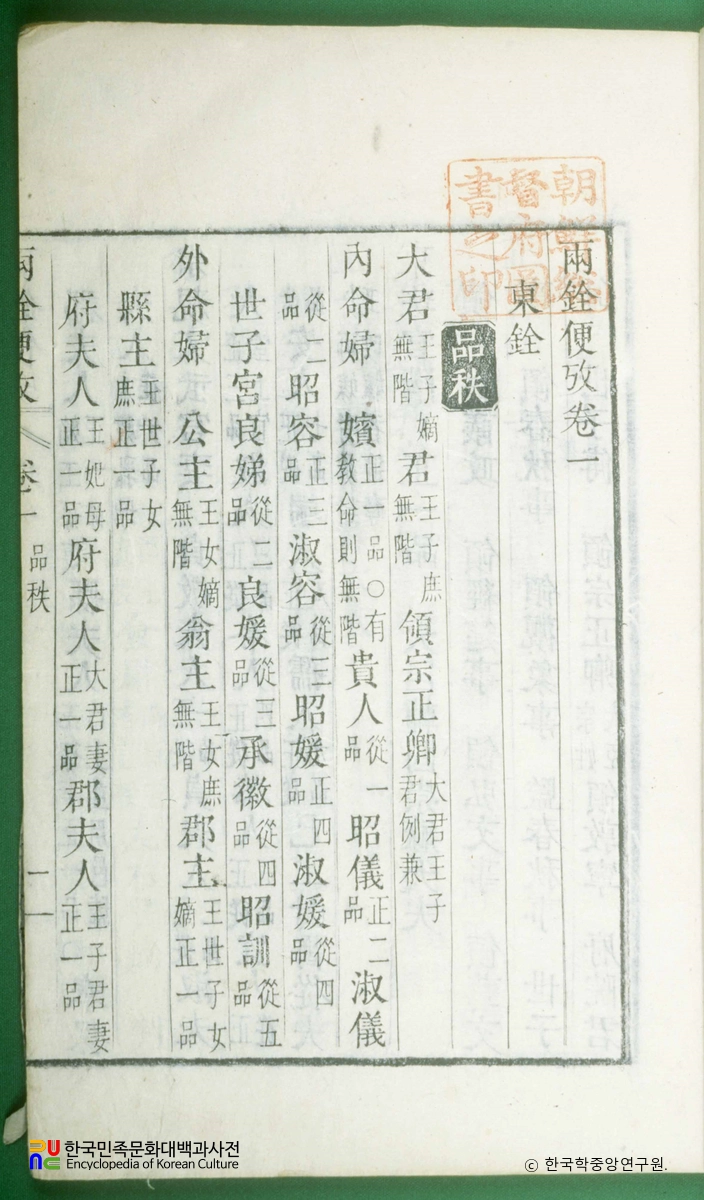 朝鮮總
督府圖
書之印
兩銓便攷卷一
東銓
品秩
大君王子嫡無階君王子庶無階領宗正卿大君王子君例兼
內命婦 嬪正一品○有教命則無階貴人從一品昭儀正二品淑儀
從二品昭容正三品淑容從三品昭媛正四品淑媛從四品
世子宮良娣從二品良媛從三品承徽從四品昭訓從五品
外命婦 公主王女嫡無階翁主王女庶無階郡主王世子女嫡正一品
縣主王世子女庶正一品
府夫人王妃母正一品府夫人大君妻正一品郡夫人王子君妻正一品
兩銓便攷 卷一 品秩 一
한국민족문화대백과사전
Encyclopedia of Korean Culture
ⓒ 한국학중앙연구원.